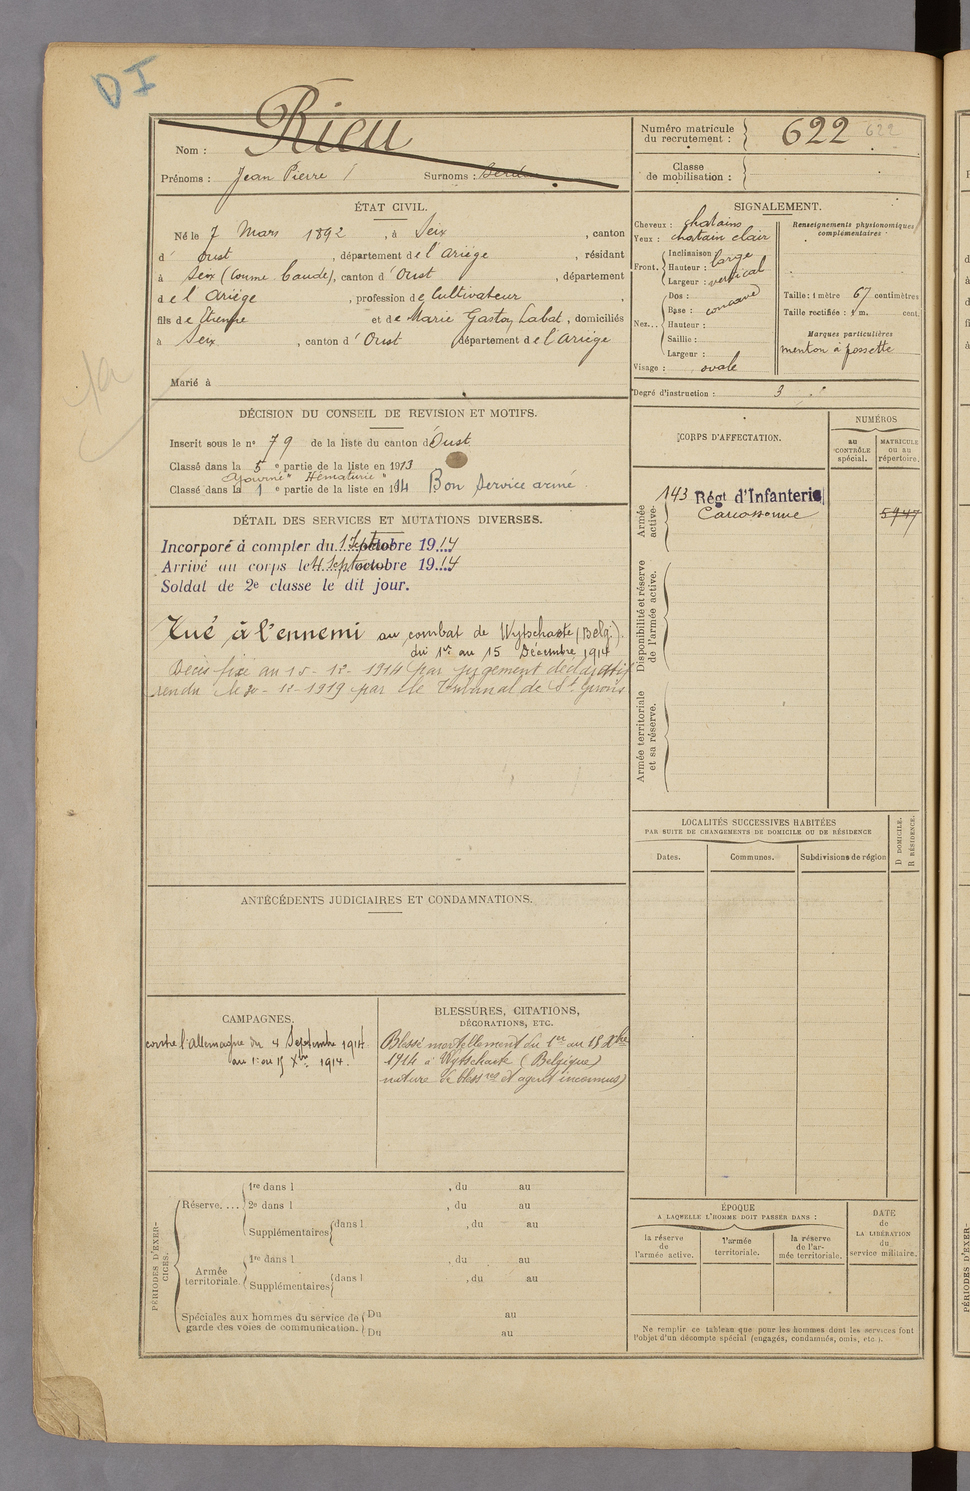 DI
Nom : Rieu
Prénoms : Jean Pierre / Surnoms :
ÉTAT CIVIL.
Né le 7 Mars 1892, à Seix, canton
d' oust, département de l'Ariège, résidant
à Seix (Coume Caude), canton d'Oust, département
de l'Ariège, profession de Cultivateur,
fils de Etienne et de Marie Gaston Labat, domiciliés
à Seix, canton d'Oust département de l'Ariège
Marié à
DÉCISION DU CONSEIL DE REVISION ET MOTIFS.
Inscrit sous le n° 79 de la liste du canton d'Oust
Classé dans la 5e partie de la liste en 1913
Ajourné "Hématurie"
Classé dans la 1e partie de la liste en 1914 Bon Service armé.
DÉTAIL DES SERVICES ET MUTATIONS DIVERSES.
Incorporé à compter du 1 Sept octobre 19...14
Arrivé au corps le 4 Sept octobre 19...14
Soldat de 2e classe le dit jour.
Tué à l'ennemi au combat de Wytschaete (Belg.).
du 1er au 15 Décembre 1914
Décès fixé au 15-12-1914 par jugement déclaratif
rendu le 20-12-1919 par le Tribunal de St Girons
ANTÉCÉDENTS JUDICIAIRES ET CONDAMNATIONS.
CAMPAGNES.
contre l'allemagne du 4 Septembre 1914
au 1: au 15 Xbre 1914.
BLESSURES, CITATIONS,
DÉCORATIONS, ETC.
Blessé mortellement du 1er au 15 Xbre
1914 à Wytschaete (Belgique)
nature de bless res et agent inconnus)
PÉRIODES D'EXERCICES.
Réserve. ...
1re dans l , du au
2e dans l , du au
Supplémentaires dans l , du au
Armée territoriale.
1re dans l , du au
Supplémentaires dans l , du au
Spéciales aux hommes du service de Du au
garde des voies de communication. Du au
Numéro matricule
du recrutement : 622 622
Classe
de mobilisation :
SIGNALEMENT.
Cheveux : chatains
Yeux : chatain clair
Front. Inclinaison
Hauteur : large
Largeur : vertical
Nez... Dos :
Base : concave
Hauteur :
Saillie :
Largeur :
Visage : ovale
Renseignements physionomiques
complémentaires :
Taille : 1 mètre 67 centimètres
Taille rectifiée : 1 m. cent.
Marques particulières
menton à fossette
Degré d'instruction : 3
CORPS D'AFFECTATION.
NUMÉROS
au
CONTRÔLE
spécial.
MATRICULE
ou au
répertoire.
Armée
active.
143 Régt d'Infanterie
Carcassonne 5947
Disponibilité et réserve
de l'armée active.
Armée territoriale
et sa réserve.
LOCALITÉS SUCCESSIVES HABITÉES
PAR SUITE DE CHANGEMENTS DE DOMICILE OU DE RÉSIDENCE
D DOMICILE.
R RÉSIDENCE.
Dates. Communes. Subdivisions de région
ÉPOQUE
A LAQUELLE L'HOMME DOIT PASSER DANS :
la réserve
de
l'armée active.
l'armée
territoriale.
la réserve
de l'ar-
mée territoriale.
DATE
de
LA LIBÉRATION
du
service militaire.
Ne remplir ce tableau que pour les hommes dont les services font
l'objet d'un décompte spécial (engagés, condamnés, omis, etc.).